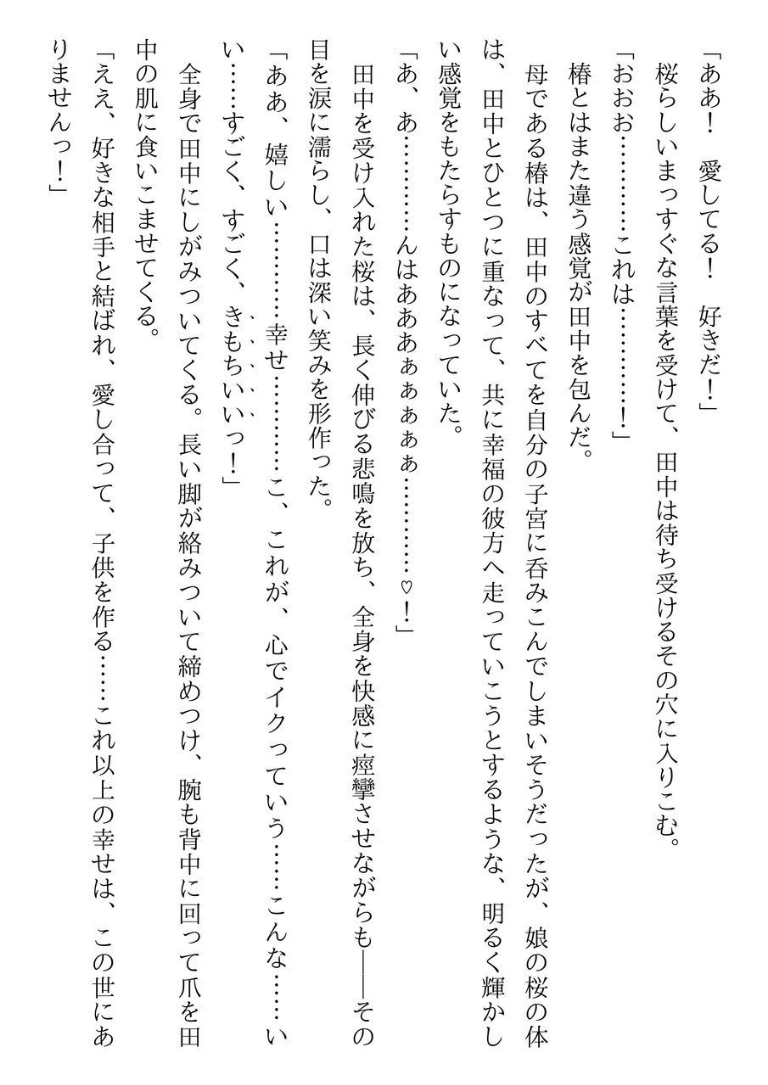 「ああ！　愛してる！　好きだ！」
　桜らしいまっすぐな言葉を受けて、田中は待ち受けるその穴に入りこむ。
「おおお…………これは…………！」
　椿とはまた違う感覚が田中を包んだ。
　母である椿は、田中のすべてを自分の子宮に呑みこんでしまいそうだったが、娘の桜の体
は、田中とひとつに重なって、共に幸福の彼方へ走っていこうとするような、明るく輝かし
い感覚をもたらすものになっていた。
「あ、あ…………んはあああぁぁぁぁぁ…………♡！」
　田中を受け入れた桜は、長く伸びる悲鳴を放ち、全身を快感に痙攣させながらも――その
目を涙に濡らし、口は深い笑みを形作った。
「ああ、嬉しい…………幸せ…………こ、これが、心でイクっていう……こんな……い
い……すごく、すごく、きもちいいっ！」
　全身で田中にしがみついてくる。長い脚が絡みついて締めつけ、腕も背中に回って爪を田
中の肌に食いこませてくる。
「ええ、好きな相手と結ばれ、愛し合って、子供を作る……これ以上の幸せは、この世にあ
りませんっ！」